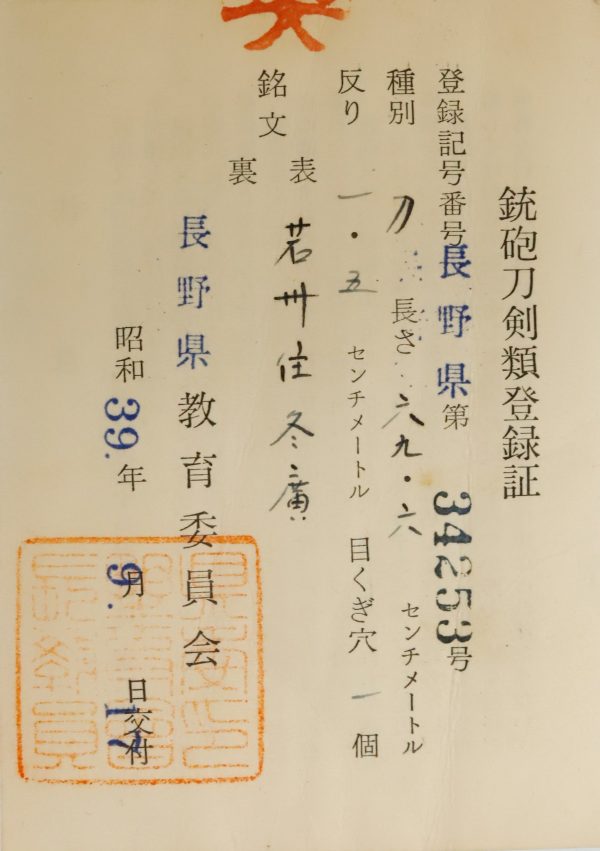 銃砲刀剣類登録証
登録記号番号 長野県 第 34253 号
種別 刀 長さ 六九・六 センチメートル
反り 一・五 センチメートル 目くぎ穴 一 個
銘文 表 若州住冬廣
裏
長野県教育委員会
昭和 39. 年 9. 月 17 日交付